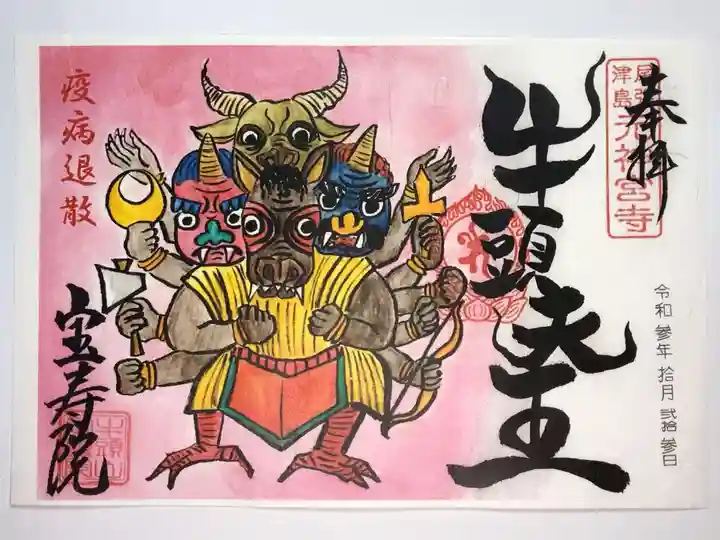 奉拝
尾張
津島
元神宮寺
牛頭天王
令和参年拾月弐拾参日
疫病退散
宝寿院